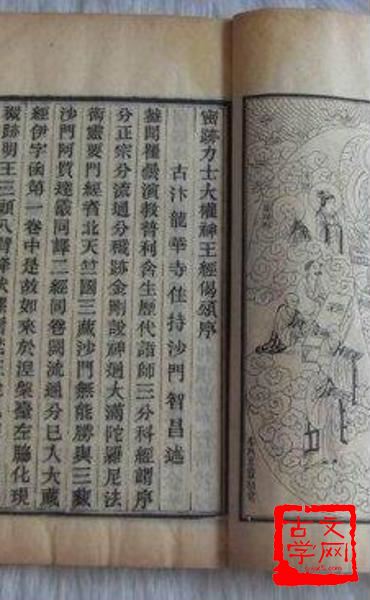 密跡力士大權神王經偈頌序
古汴龍華寺住持沙門智昌述
演教普利含生歷代諸師三分科經謂序
分正宗分流通分穢跡金剛說神通大滿陀羅尼法
術靈要門經者北天竺國三藏沙門無能勝與三藏
沙門阿質達霰同譯二經同卷闕流通分已入大藏
經伊字函第一卷中是故如來於涅槃臺左脇化現
穢跡明王三頭八臂
古文
学网